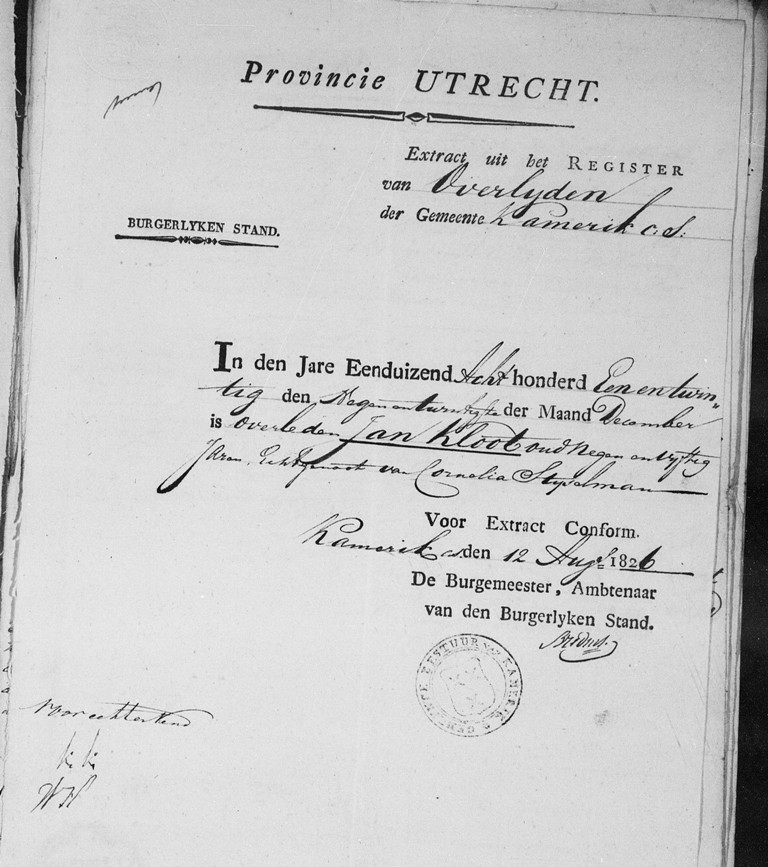 Provincie UTRECHT.
Extract uit het REGISTER
van Overlyden
der Gemeente Kamerik c.s:
BURGERLYKEN STAND.
In den Jare Eenduizend Acht honderd Eenentwin„
tig den Negenentwintigste der Maand December
is overleden Jan Kloot oud Negen en vyftig
Jaren, Echtgenoot van Cornelia Stypelman
Voor Extract Conform.
Kamerik cs den 12 Augs 1826
De Burgemeester, Ambtenaar
van den Burgerlyken Stand.
Bredius
GEMEENTE BESTUUR VAN KAMERIK
Voor echt erkend